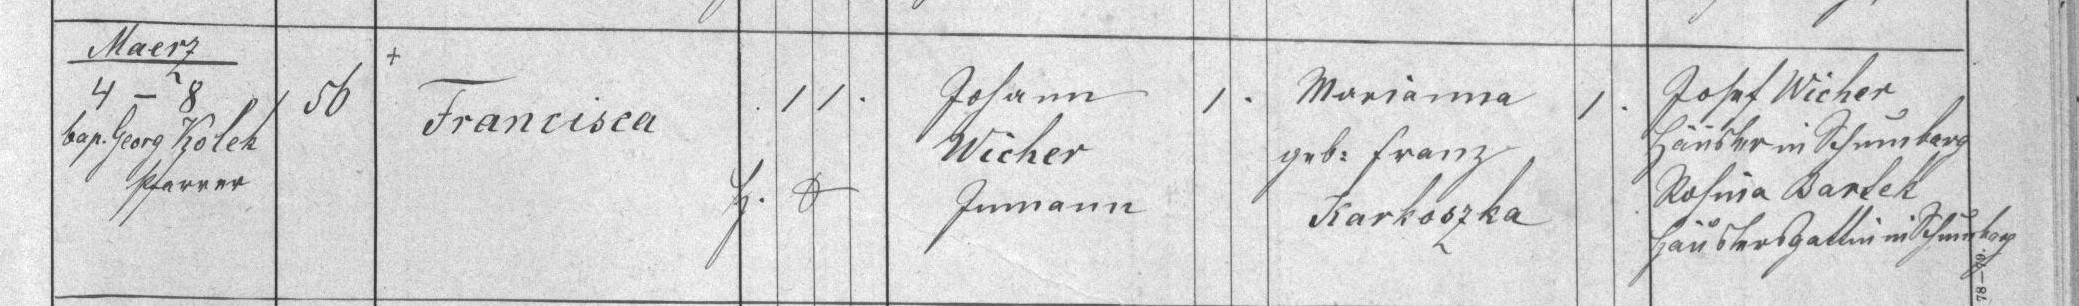 Maerz
4 – 8
bap. Georg Kolek
Pfarrer
56
+
Francisca
1 1.
H.
Johann
Wicher
Inmann
1.
Marianna
geb: Franz
Karkoszka
1.
Josef Wicher
Häusler in Schumbarg
Rosina Bartek
Häuslersgattin in Schumbarg
78–79